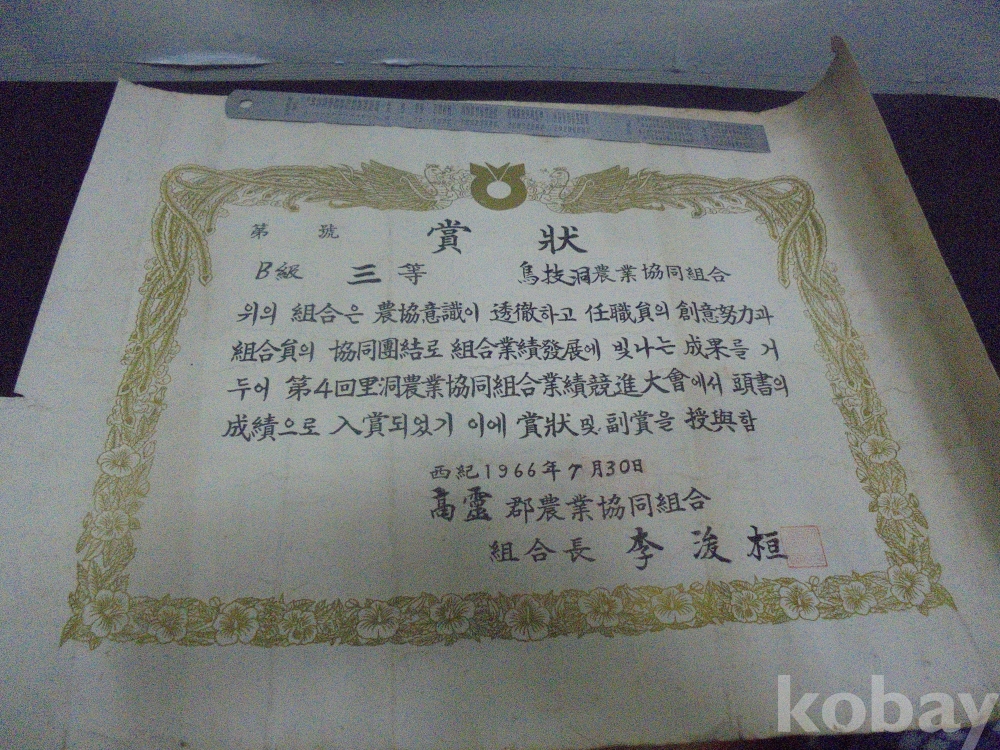 第 號 賞 狀
B級 三等 烏技洞農業協同組合
위의 組合은 農協意識이 透徹하고 任職員의 創意努力과
組合員의 協同團結로 組合業績發展에 빛나는 成果를 거
두어 第4回里洞農業協同組合業績競進大會에서 頭書의
成績으로 入賞되었기 이에 賞狀 및 副賞을 授與함
西紀1966年7月30日
高靈郡農業協同組合
組合長 李浚桓
kobay